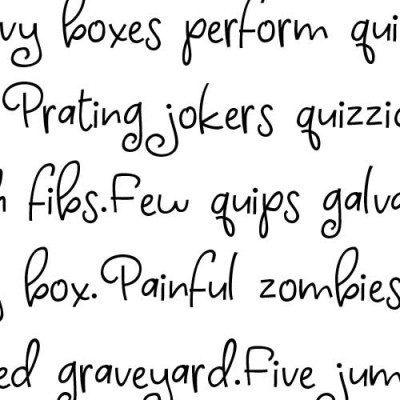 vy boxes perform qui
Prating jokers quizzic
h fibs.Few quips galva
box.Painful zombies
ed graveyard.Five jum